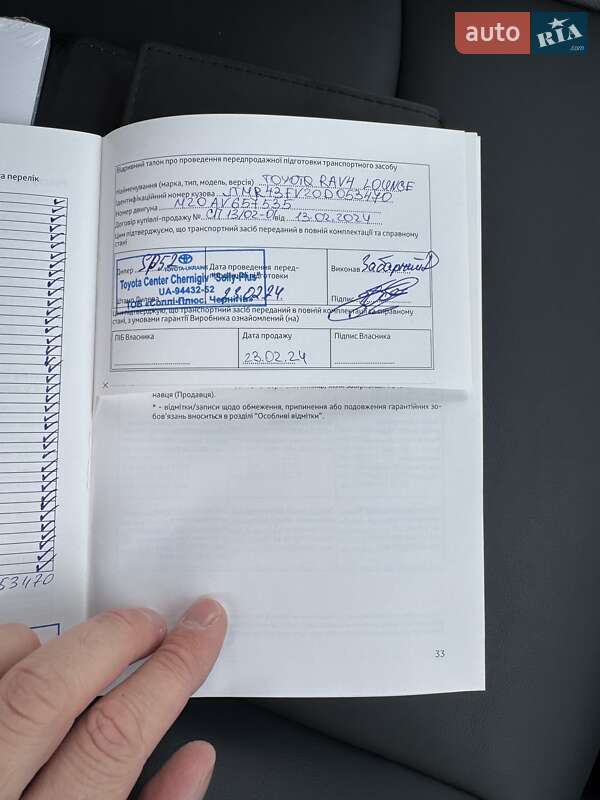 auto RIA.com
а перелік
Відривний талон про проведення передпродажної підготовки транспортного засобу
Найменування (марка, тип, модель, версія) TOYOTA RAV4 LOUNGE
Ідентифікаційний номер кузова JTMR43FV20D053470
Номер двигуна M20AV657535
Договір купівлі-продажу № СП 13/02-06 від 13.02.2024
Цим підтверджуємо, що транспортний засіб переданий в повній комплектації та справному
стані
Дилер SP52 TOYOTA-UKRAINE Дата проведення перед- Виконав Забарний
підготовки
Toyota Center Chernigiv "Solly-Plus"
UA-94432-52
Штамп Дилера 23.02.24. Підпис
ТОВ «Соллі-Плюс Чернігів»
Цим підтверджую, що транспортний засіб переданий в повній комплектації та справному
стані, з умовами гарантії Виробника ознайомлений (на)
ПІБ Власника Дата продажу Підпис Власника
23.02.24
навця (Продавця).
* - відмітки/записи щодо обмеження, припинення або подовження гарантійних зо-
бов'язань вноситься в розділі "Особливі відмітки".
53470
33